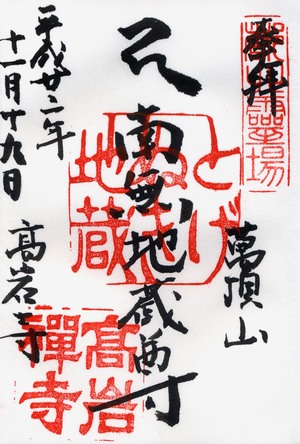 奉拝
萬頂山
南無地蔵尊
とげ
ぬき
地蔵
平成廿二年
十一月十九日
高岩寺
高岩
禪寺